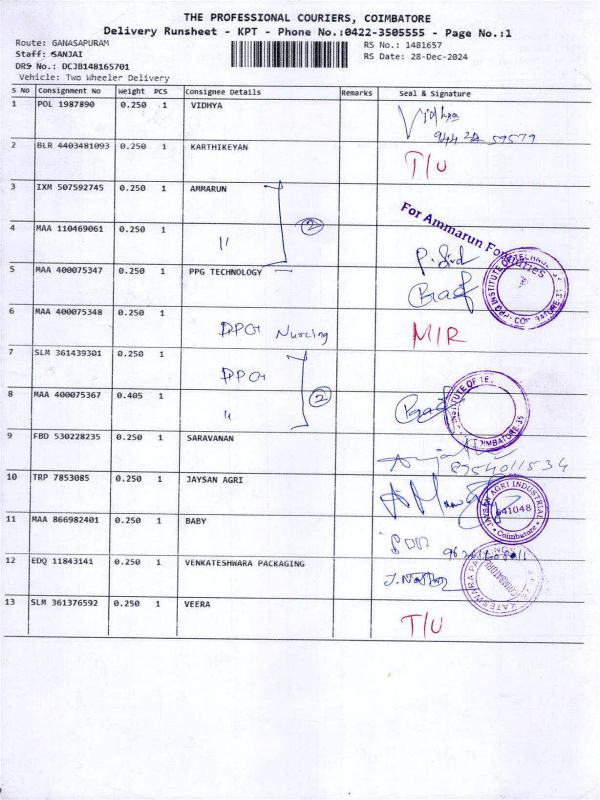 THE PROFESSIONAL COURIERS, COIMBATORE
Delivery Runsheet - KPT - Phone No.:0422-3505555 - Page No.:1
Route: GANASAPURAM
Staff: SANJAI
RS No.: 1481657
DRS No.: DCJB148165701
RS Date: 28-Dec-2024
Vehicle: Two Wheeler Delivery
S No Consignment No Weight PCS Consignee Details Remarks Seal & Signature
1 POL 1987890 0.250 1 VIDHYA Vidhya
944 22 59579
2 BLR 4403481093 0.250 1 KARTHIKEYAN T/U
3 IXM 507592745 0.250 1 AMMARUN
For Ammarun
4 MAA 110469061 0.250 1 11 2
5 MAA 400075347 0.250 1 PPG TECHNOLOGY
INSTITUTE OF TECHNOLOGY
6 MAA 400075348 0.250 1 PPG Nursing M/R
7 SLM 361439301 0.250 1 PPG
8 MAA 400075367 0.405 1 11 2
INSTITUTE OF TE
9 FBD 530228235 0.250 1 SARAVANAN
8954011534
10 TRP 7853085 0.250 1 JAYSAN AGRI
JAYSAN AGRI INDUSTRIAL
641048
Coimbatore
11 MAA 866982401 0.250 1 BABY
12 EDQ 11843141 0.250 1 VENKATESHWARA PACKAGING
COIMBATORE
13 SLM 361376592 0.250 1 VEERA T/U